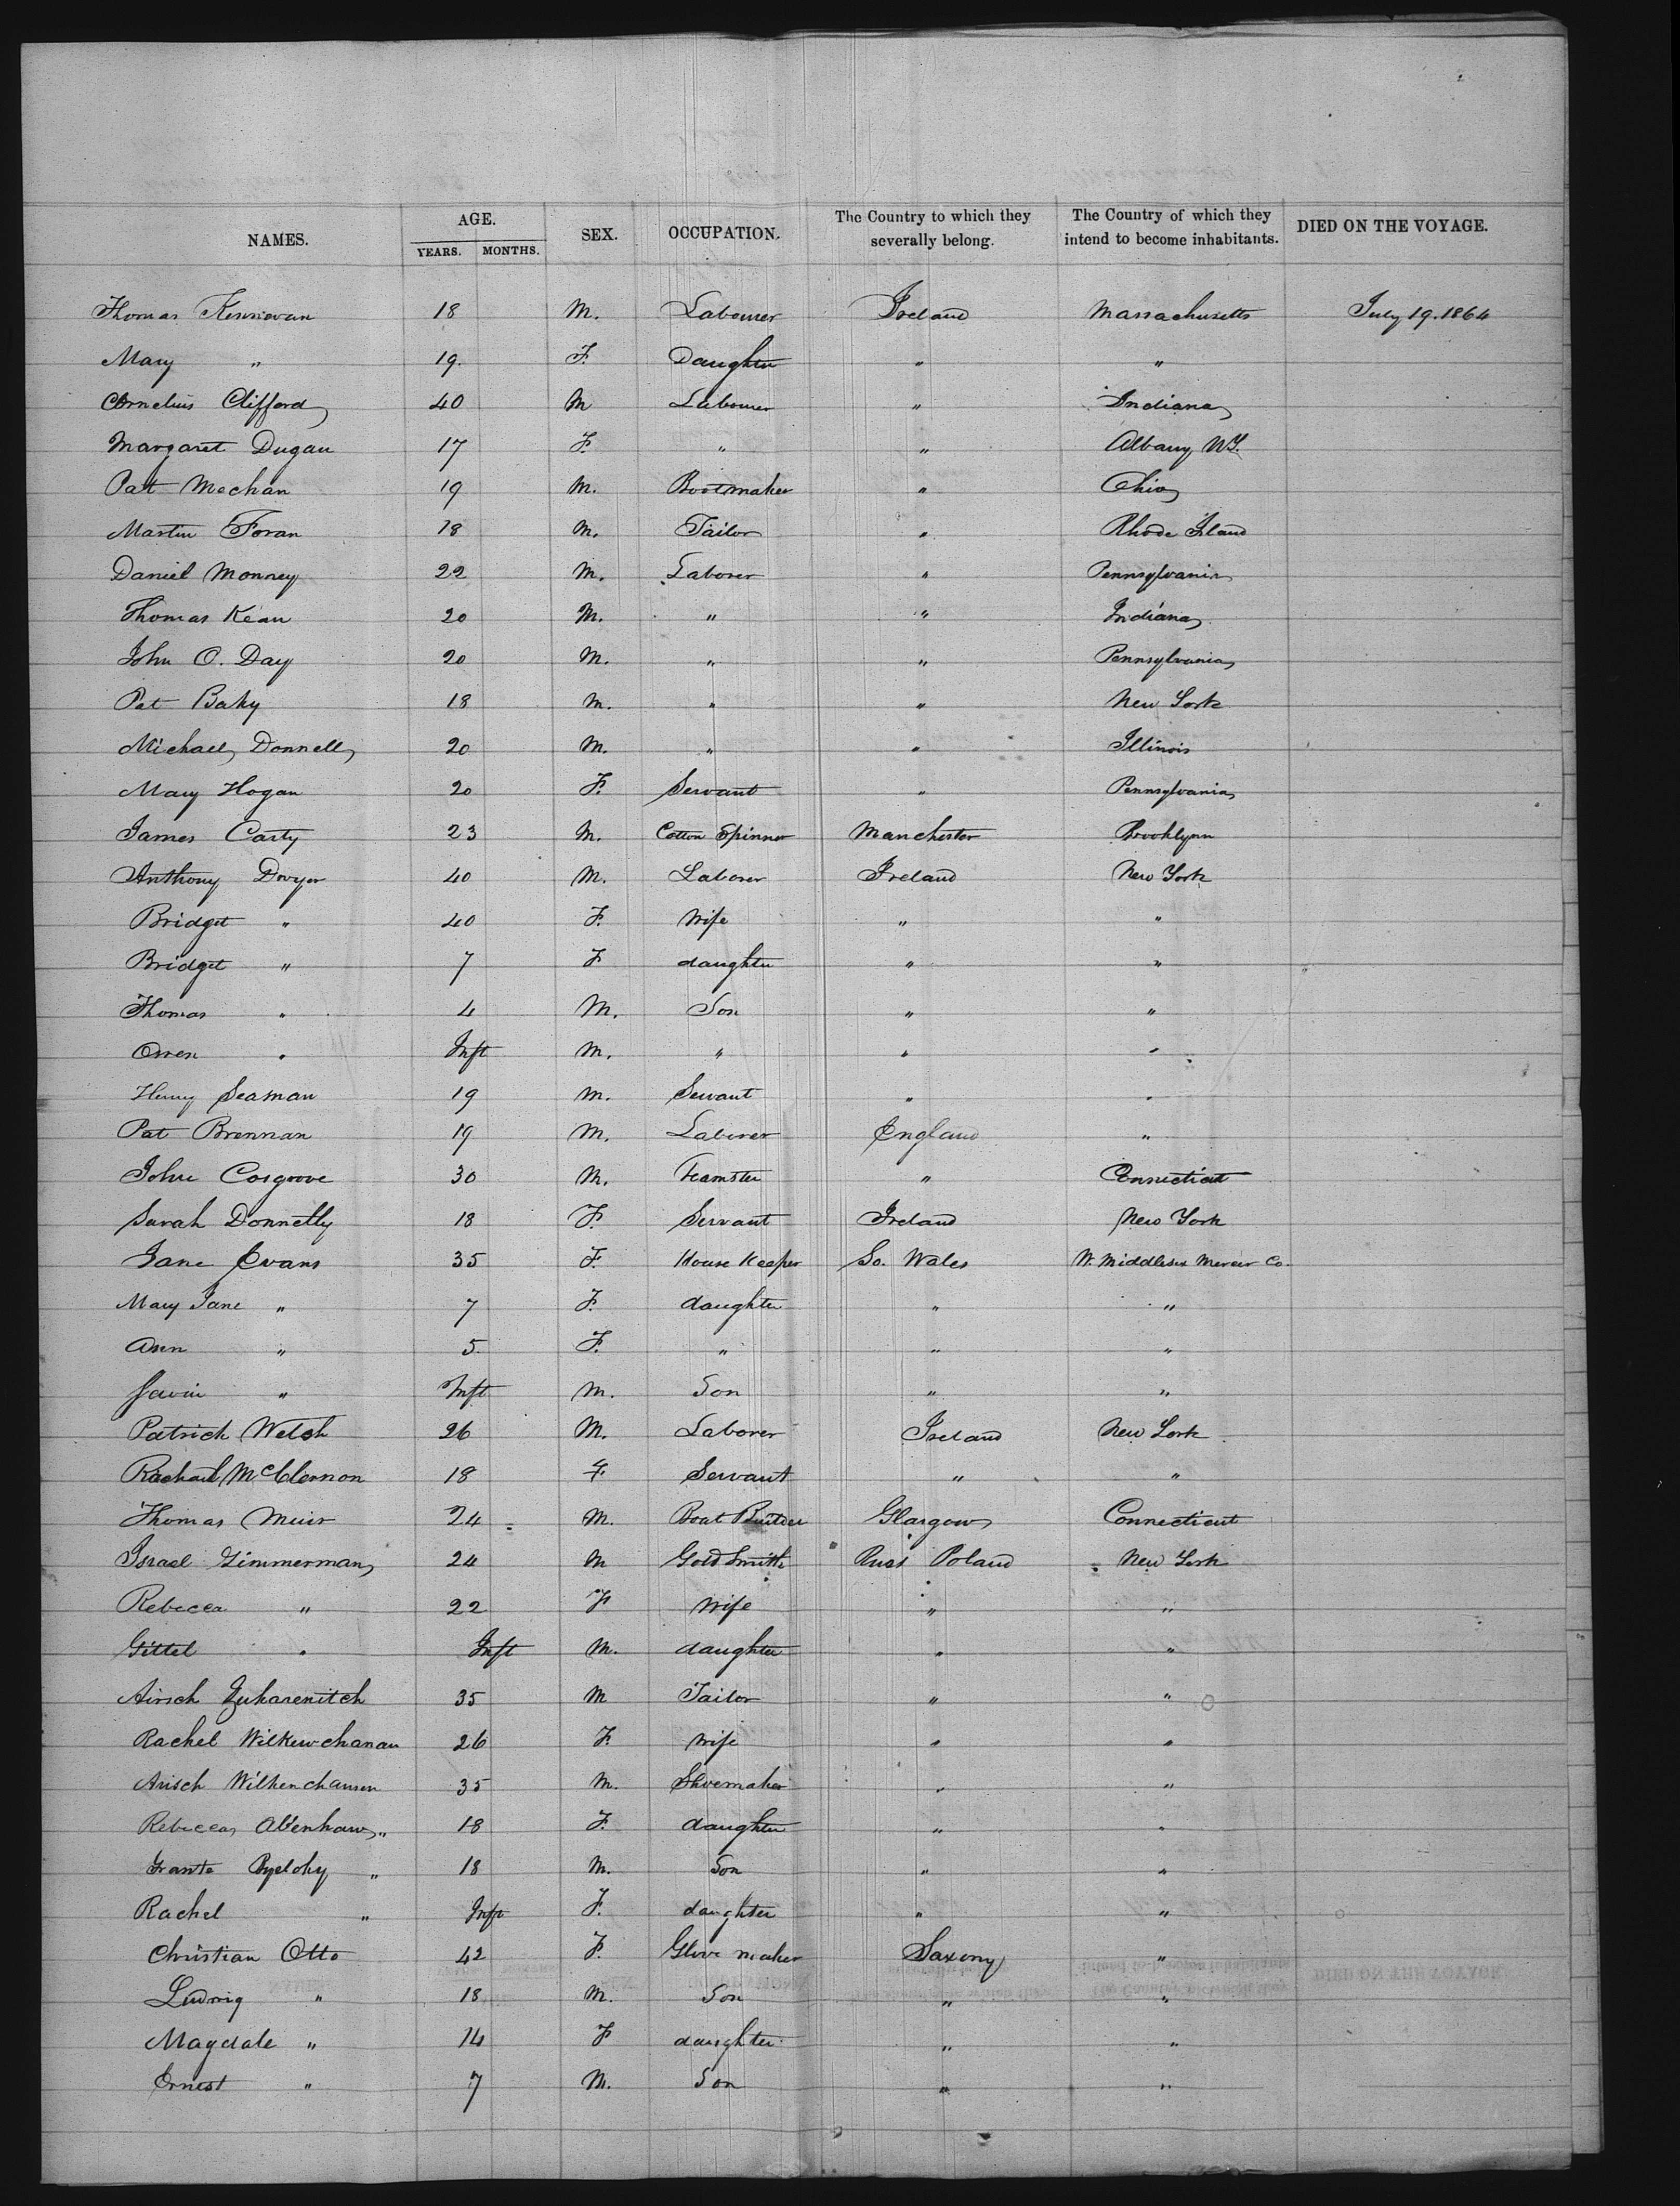 NAMES. AGE. YEARS. MONTHS. SEX. OCCUPATION. The Country to which they severally belong. The Country of which they intend to become inhabitants. DIED ON THE VOYAGE.
Thomas Kennevan 18 M. Labourer Ireland Massachusetts July 19. 1864
Mary " 19. F. Daughter " "
Cornelius Clifford 40 M Labourer " Indiana
Margaret Dugan 17 F. " " Albany NY.
Pat Mechan 19 M. Bootmaker " Ohio
Martin Foran 18 M. Tailor " Rhode Iland
Daniel Monney 22 M. Laborer " Pennsylvania
Thomas Kean 20 M. " " Indiana
John O. Day 20 M. " " Pennsylvania
Pat Bahy 18 M. " " New York
Michael Donnell 20 M. " " Illinois
Mary Hogan 20 F. Servant " Pennsylvania
James Carty 23 M. Cotton Spinner Manchester Brooklynn
Anthony Dwyer 40 M. Laborer Ireland New York
Bridget " 40 F. Wife " "
Bridget " 7 F daughter " "
Thomas " 4 M. Son " "
Owen " Inft M. " " "
Henry Seaman 19 M. Servant " "
Pat Brennan 19 M. Laborer England "
John Cosgrove 30 M. Teamster " Connecticut
Sarah Donnelly 18 F. Servant Ireland New York
Jane Evans 35 F. House Keeper So. Wales W. Middlesex Mercer Co.
Mary Jane " 7 F. daughter " "
Ann " 5. F. " " "
" Inft M. Son " "
Patrick Welsh 26 M. Laborer Ireland New York
Rachael McClernon 18 F Servant " "
Thomas Muir 24 M. Boat Builder Glasgow Connecticut
Israel Zimmerman 24 M Gold Smith Russ Poland New York
Rebecca " 22 F Wife " "
Gittel " Inft M. daughter " "
Airsch Zuharenitch 35 M Tailor " "
Rachel Wilkewchanan 26 F. Wife " "
Arisch Wilkenchansen 35 M. Shoemaker " "
Rebecca " 18 F. daughter " "
" 18 M. Son " "
Rachel " Inft F. daughter " "
Christian Otto 42 F. Glove maker Saxony "
Ludwig " 18 M. Son " "
Magdale " 14 F daughter " "
Ernest " 7 M. Son " "